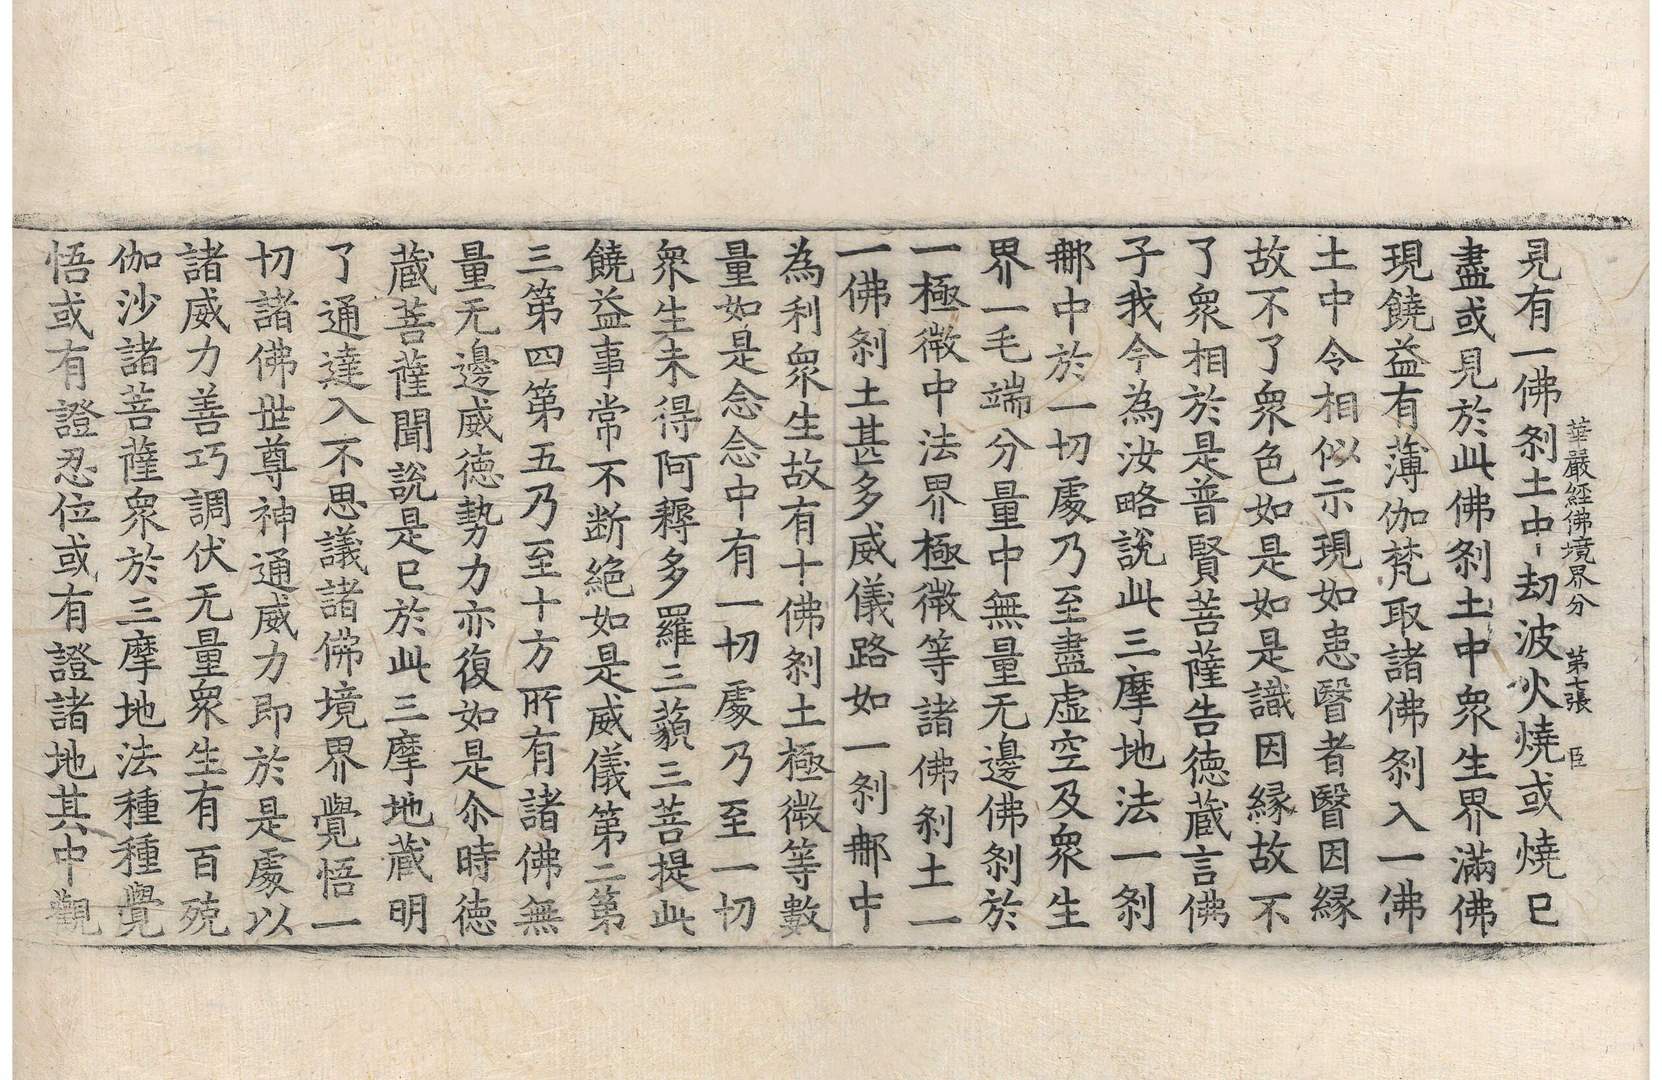 華嚴經佛境界分 第七張 臣
見有一佛刹土中劫波火燒或燒已
盡或見於此佛刹土中衆生界滿佛
現饒益有薄伽梵取諸佛刹入一佛
土中令相似示現如患瞖者瞖因縁
故不了衆色如是如是識因縁故不
了衆相於是普賢菩薩告徳蔵言佛
子我今為汝略說此三摩地法一刹
𨚗中於一切處乃至盡虚空及衆生
界一毛端分量中無量无邊佛刹於
一極微中法界極微等諸佛刹土一
一佛刹土甚多威儀路如一刹𨚗中
為利衆生故有十佛刹土極微等數
量如是念念中有一切處乃至一切
衆生未得阿耨多羅三藐三菩提此
饒益事常不断絶如是威儀第二第
三第四第五乃至十方所有諸佛無
量无邊威徳勢力亦復如是尒時徳
蔵菩薩聞說是已於此三摩地蔵明
了通達入不思議諸佛境界覺悟一
切諸佛世尊神通威力即於是處以
諸威力善巧調伏无量衆生有百殑
伽沙諸菩薩衆於三摩地法種種覺
悟或有證忍位或有證諸地其中觀